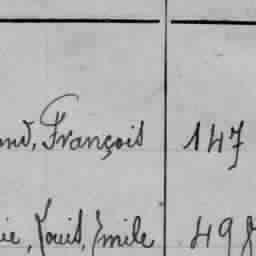 ond, François 147
ie, Louis, Emile 498